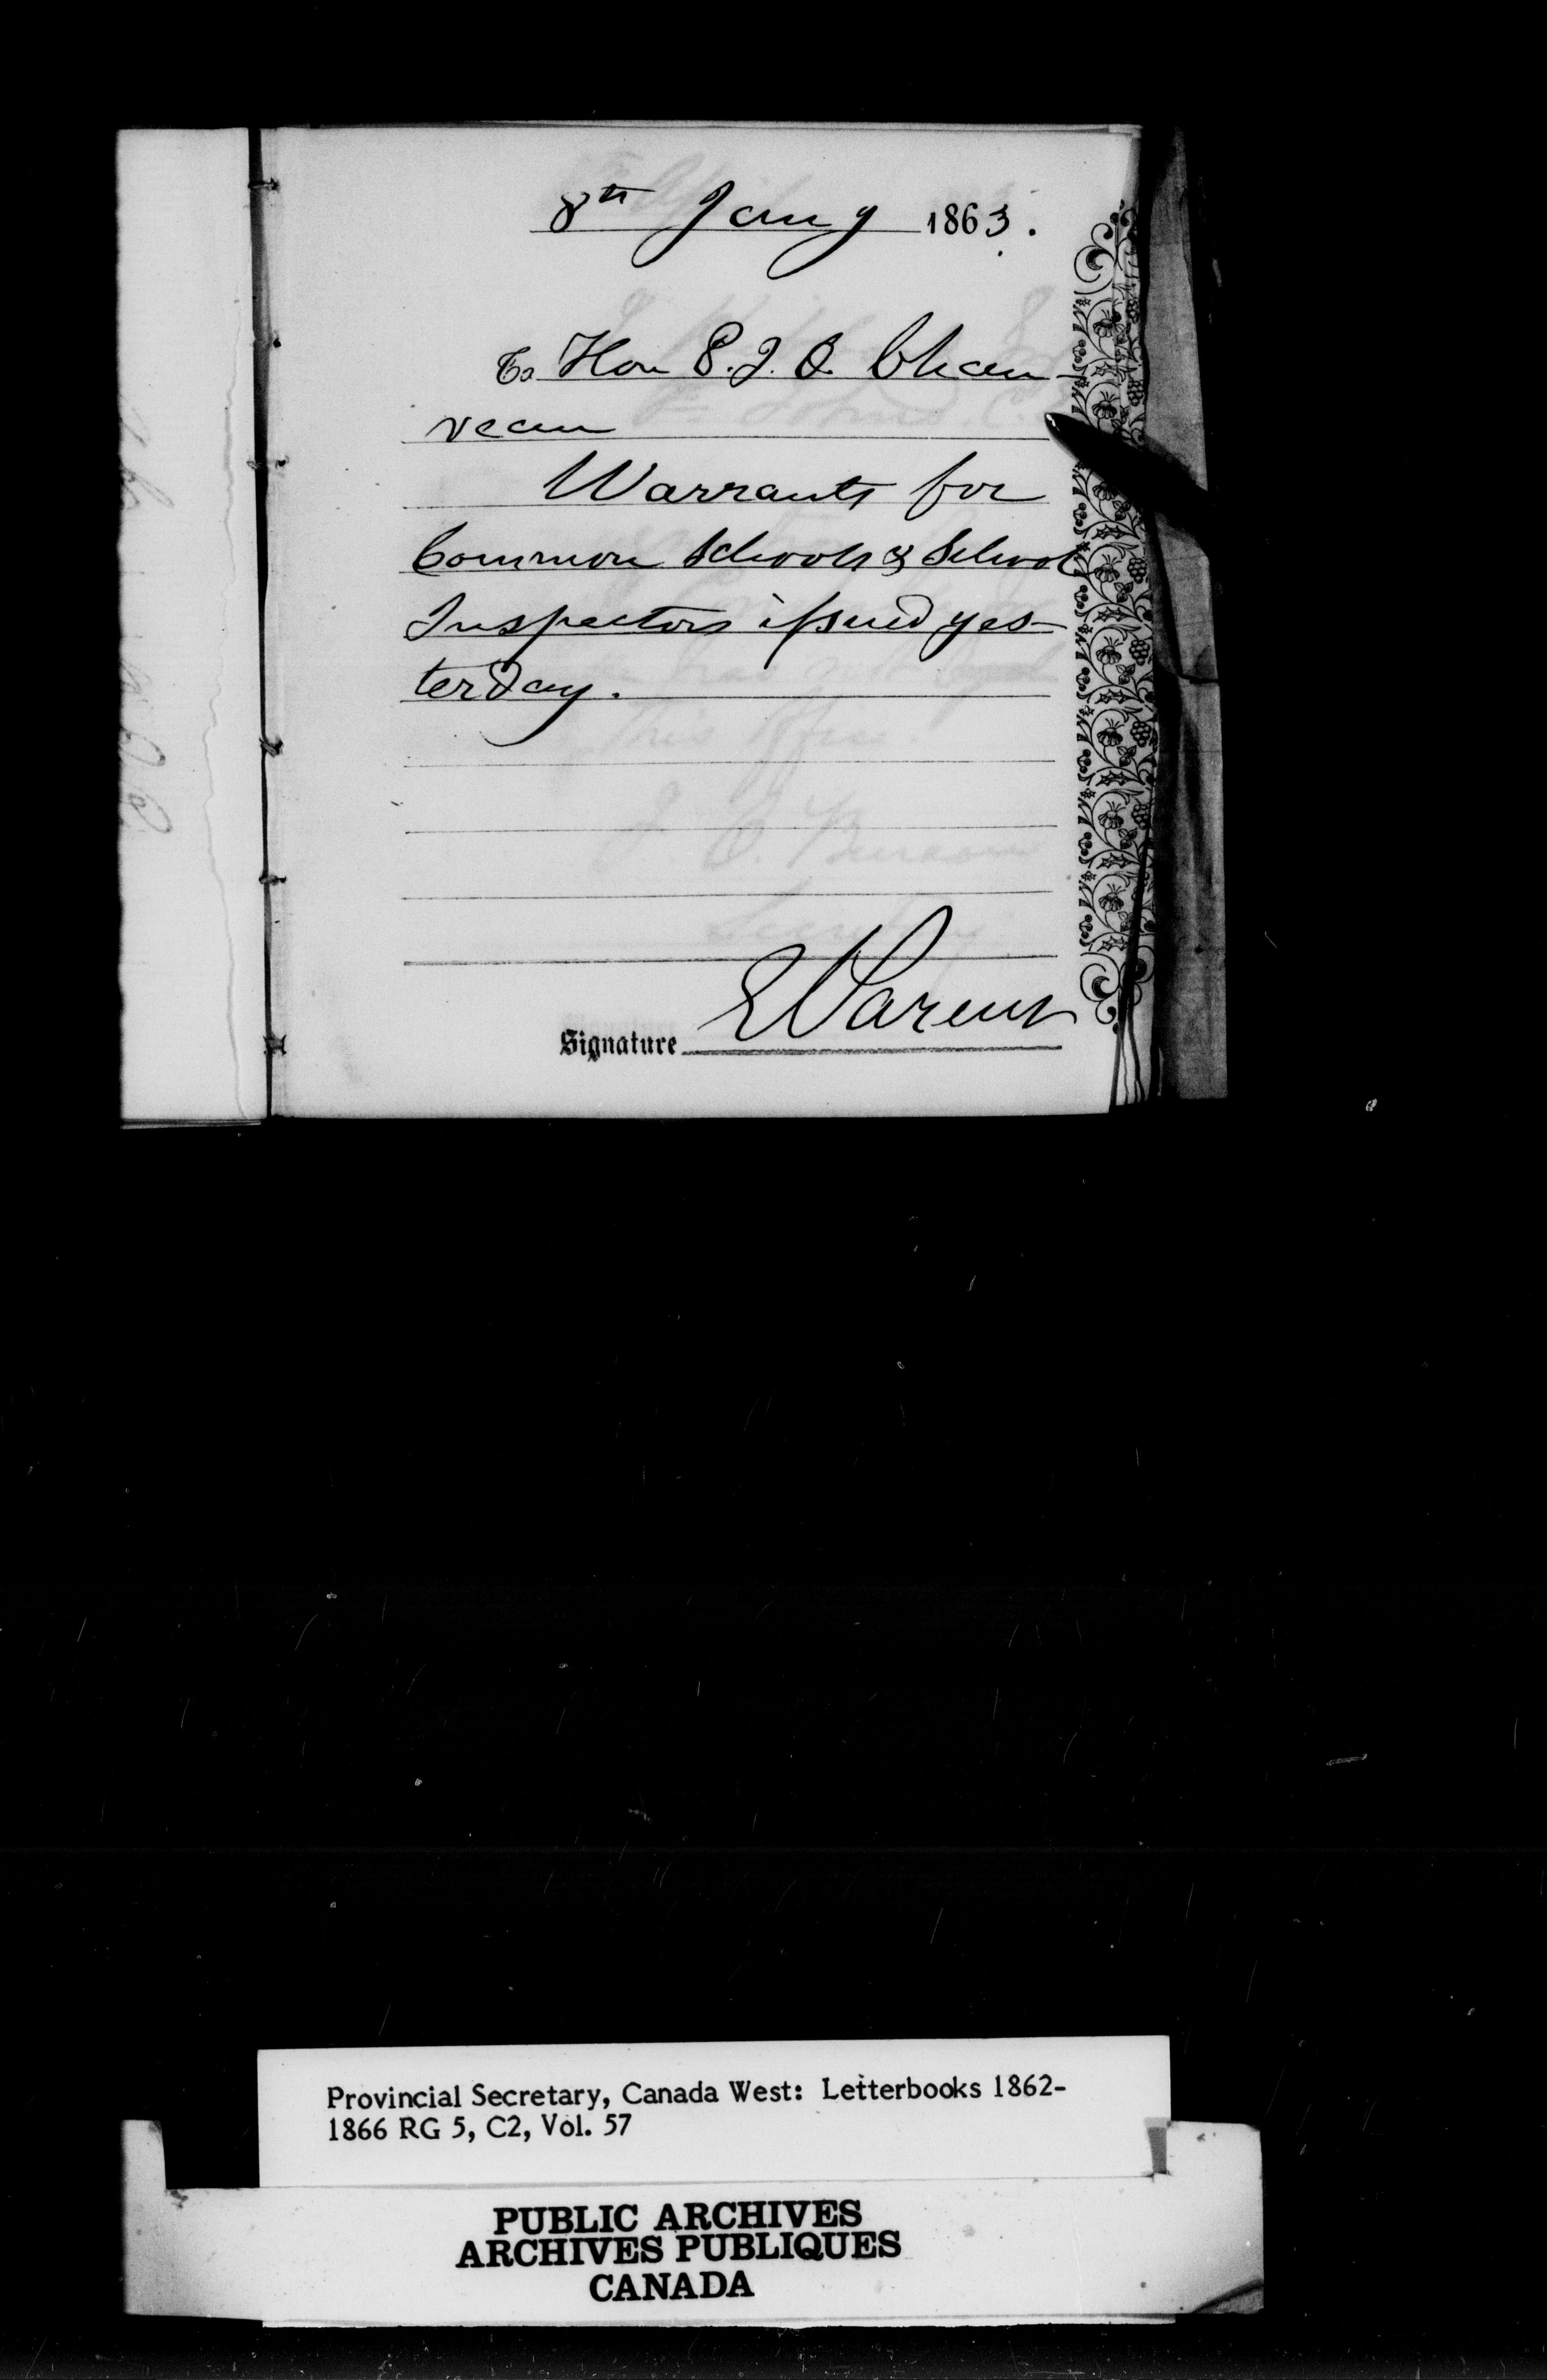 8th Jany 1863.
To Hon P. J. O. Chau-
veau
Warrants for
Common Schools & School
Inspectors issued yes-
terday.
Signature E Parent
Provincial Secretary, Canada West: Letterbooks 1862-
1866 RG 5, C2, Vol. 57
PUBLIC ARCHIVES
ARCHIVES PUBLIQUES
CANADA